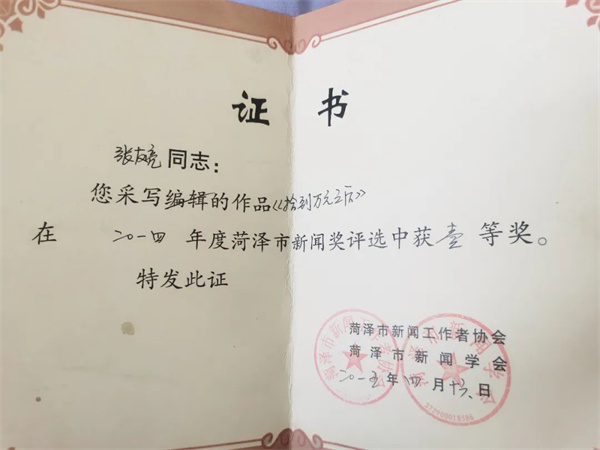 证书
张友亮同志：
您采写编辑的作品《拾到万元之后》
在二〇一四年度菏泽市新闻奖评选中获壹等奖。
特发此证
菏泽市新闻工作者协会
菏泽市新闻学会
二〇一五年四月十六日